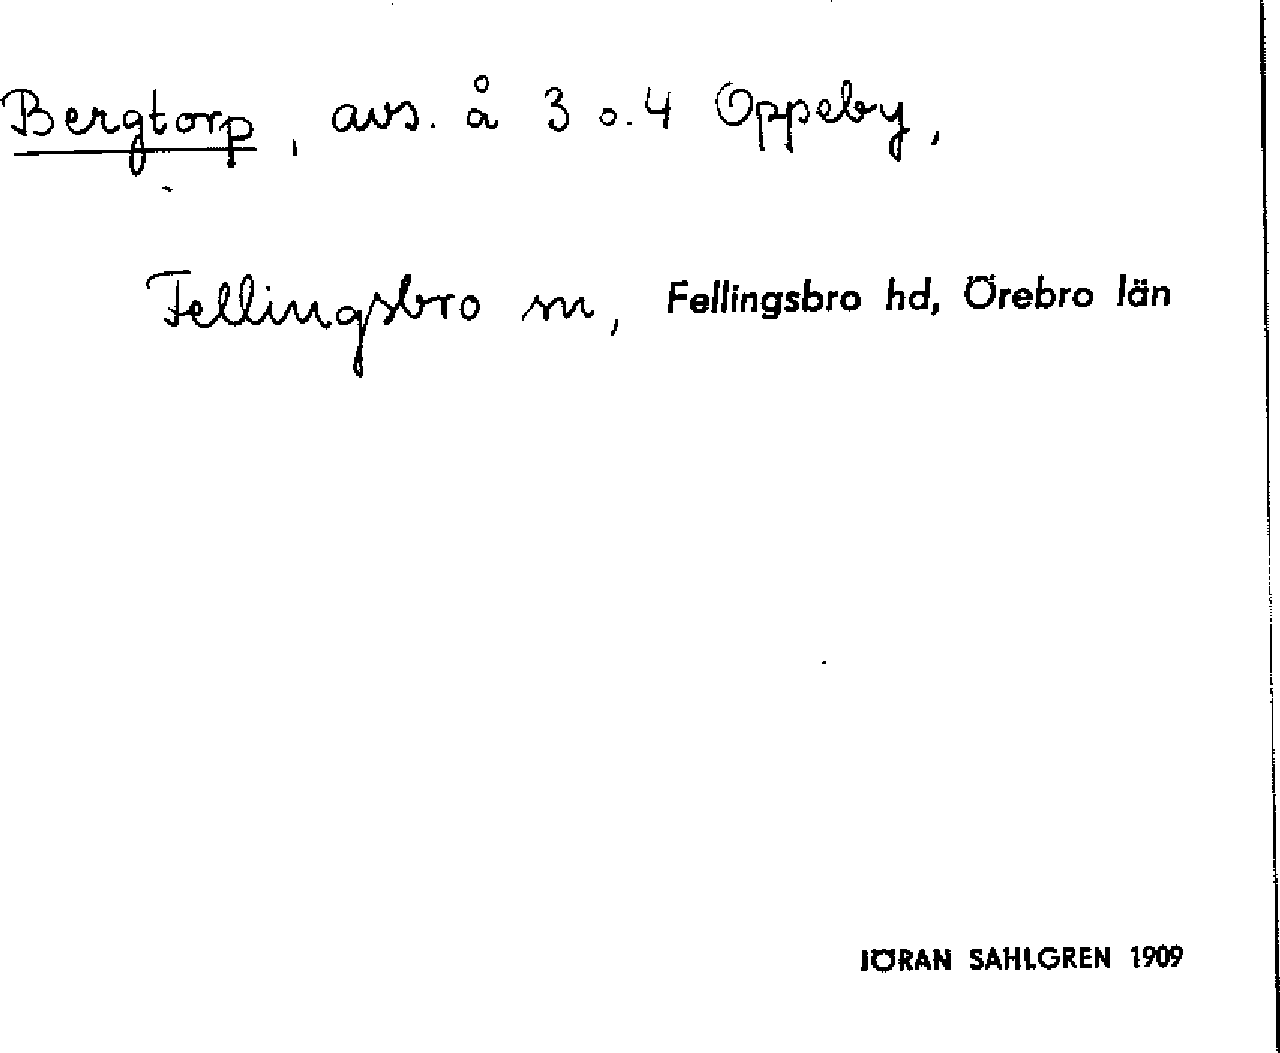 Bergtorp, avs. å 3 o. 4 Oppeby,
Fellingsbro sn, Fellingsbro hd, Örebro län
JÖRAN SAHLGREN 1909